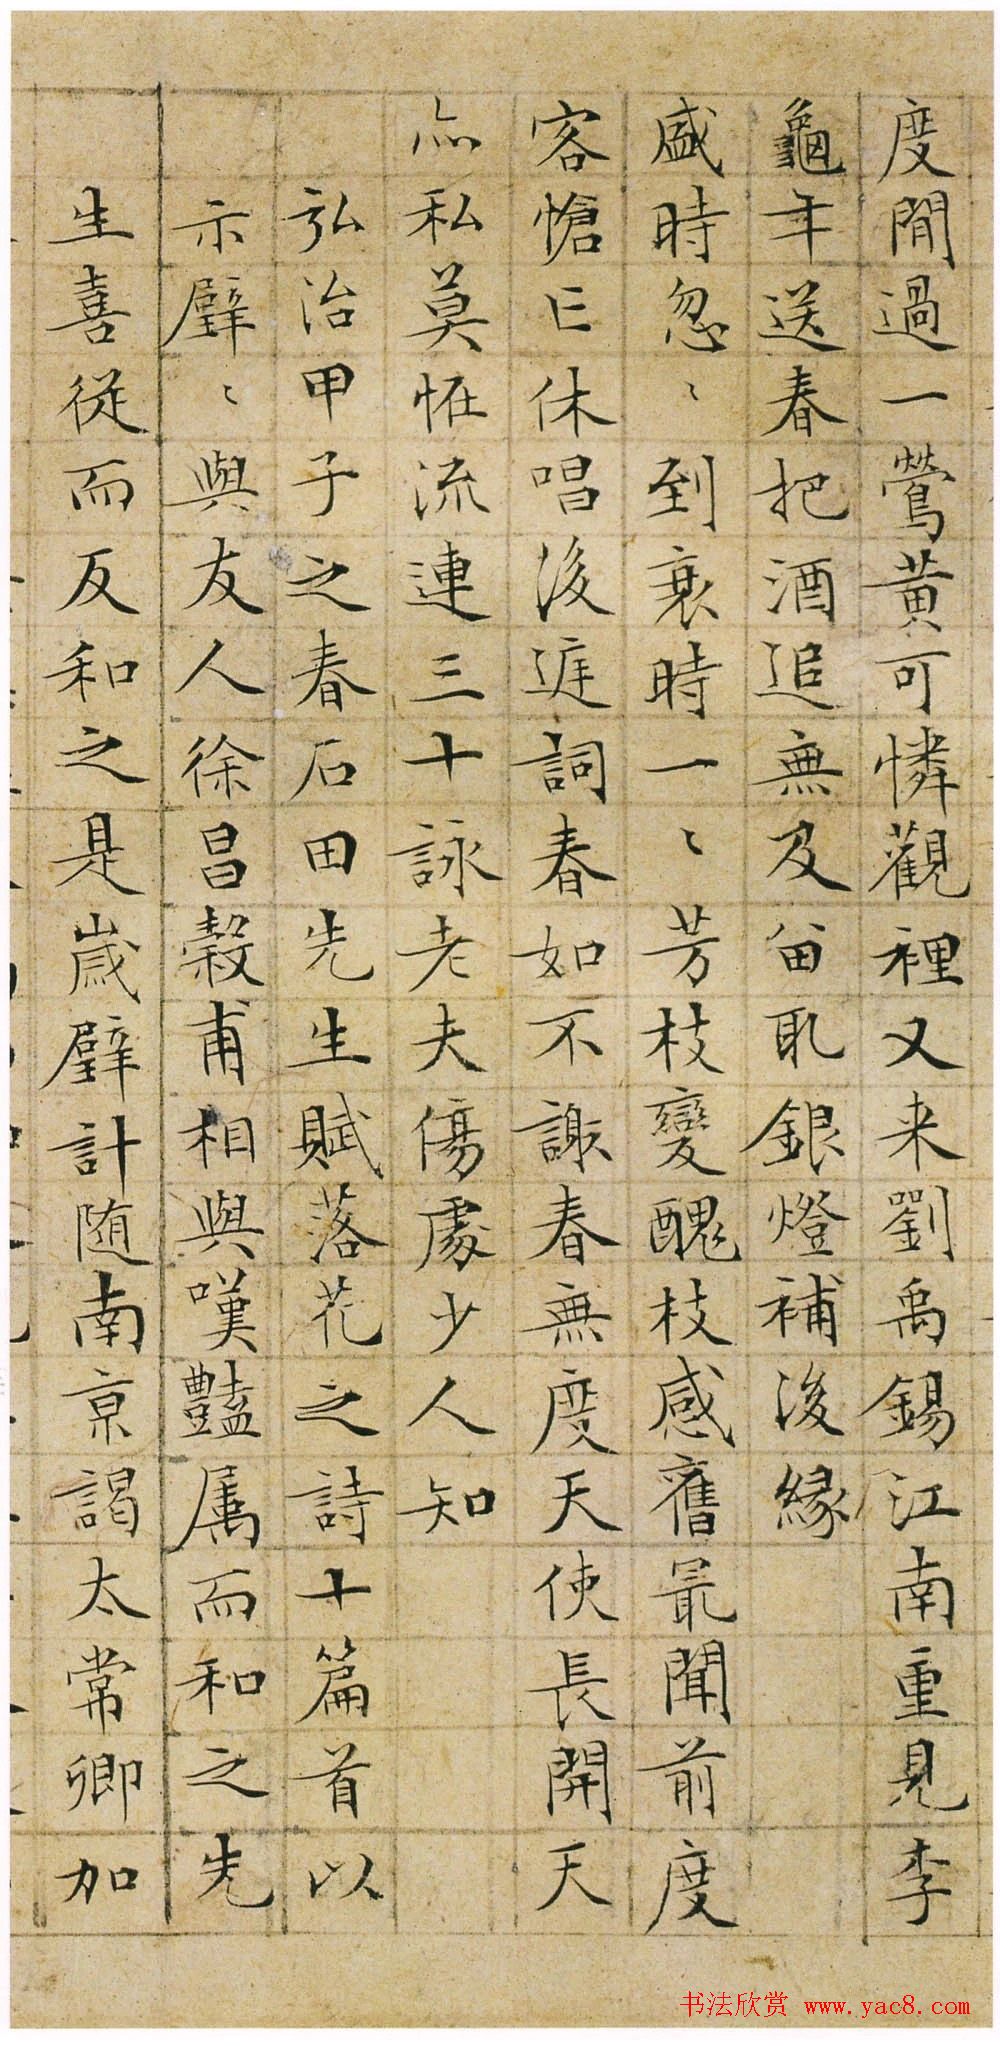 度閒過一鶯黃可憐觀裡又来劉禹錫江南重見李
龜年送春把酒追無及留取銀燈補後緣
盛時忽〻到衰時一〻芳枝變醜枝感舊最聞前度
客愴亡休唱後庭詞春如不謝春無度天使長開天
亦私莫恠流連三十詠老夫傷處少人知
弘治甲子之春石田先生賦落花之詩十篇首以
示璧〻與友人徐昌榖甫相與嘆豔属而和之先
生喜從而反和之是歲璧計随南京謁太常卿加
书法欣赏 www.yac8.com